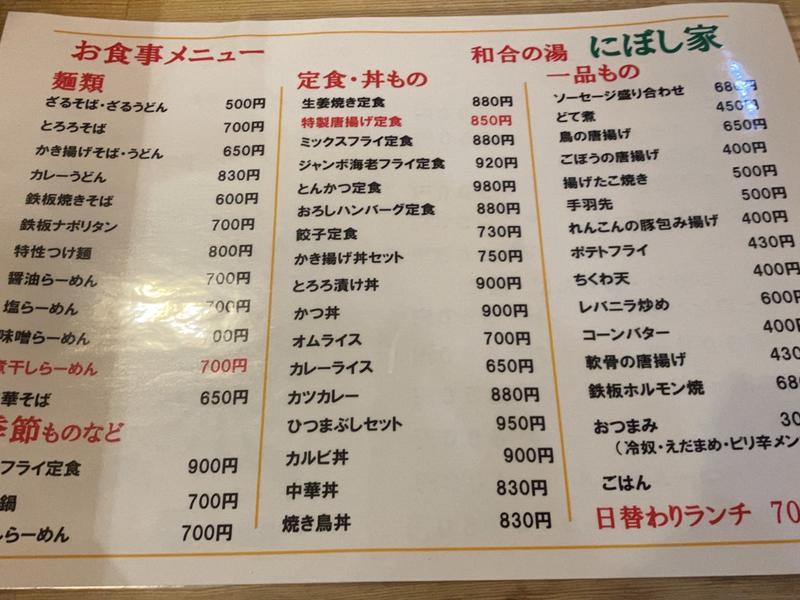 お食事メニュー
和合の湯 にぼし家
麺類
ざるそば・ざるうどん 500円
とろろそば 700円
かき揚げそば・うどん 650円
カレーうどん 830円
鉄板焼きそば 600円
鉄板ナポリタン 700円
特性つけ麺 800円
醤油らーめん 700円
塩らーめん 700円
味噌らーめん 00円
煮干しらーめん 700円
華そば 650円
季節ものなど
フライ定食 900円
鍋 700円
らーめん 700円
定食・丼もの
生姜焼き定食 880円
特製唐揚げ定食 850円
ミックスフライ定食 880円
ジャンボ海老フライ定食 920円
とんかつ定食 980円
おろしハンバーグ定食 880円
餃子定食 730円
かき揚げ丼セット 750円
とろろ漬け丼 900円
かつ丼 900円
オムライス 700円
カレーライス 650円
カツカレー 880円
ひつまぶしセット 950円
カルビ丼 900円
中華丼 830円
焼き鳥丼 830円
一品もの
ソーセージ盛り合わせ 680円
どて煮 450円
鳥の唐揚げ 650円
ごぼうの唐揚げ 400円
揚げたこ焼き 500円
手羽先 500円
れんこんの豚包み揚げ 400円
ポテトフライ 430円
ちくわ天 400円
レバニラ炒め 600円
コーンバター 400
軟骨の唐揚げ 430
鉄板ホルモン焼 680
おつまみ 30
（冷奴・えだまめ・ピリ辛メン
ごはん
日替わりランチ 70